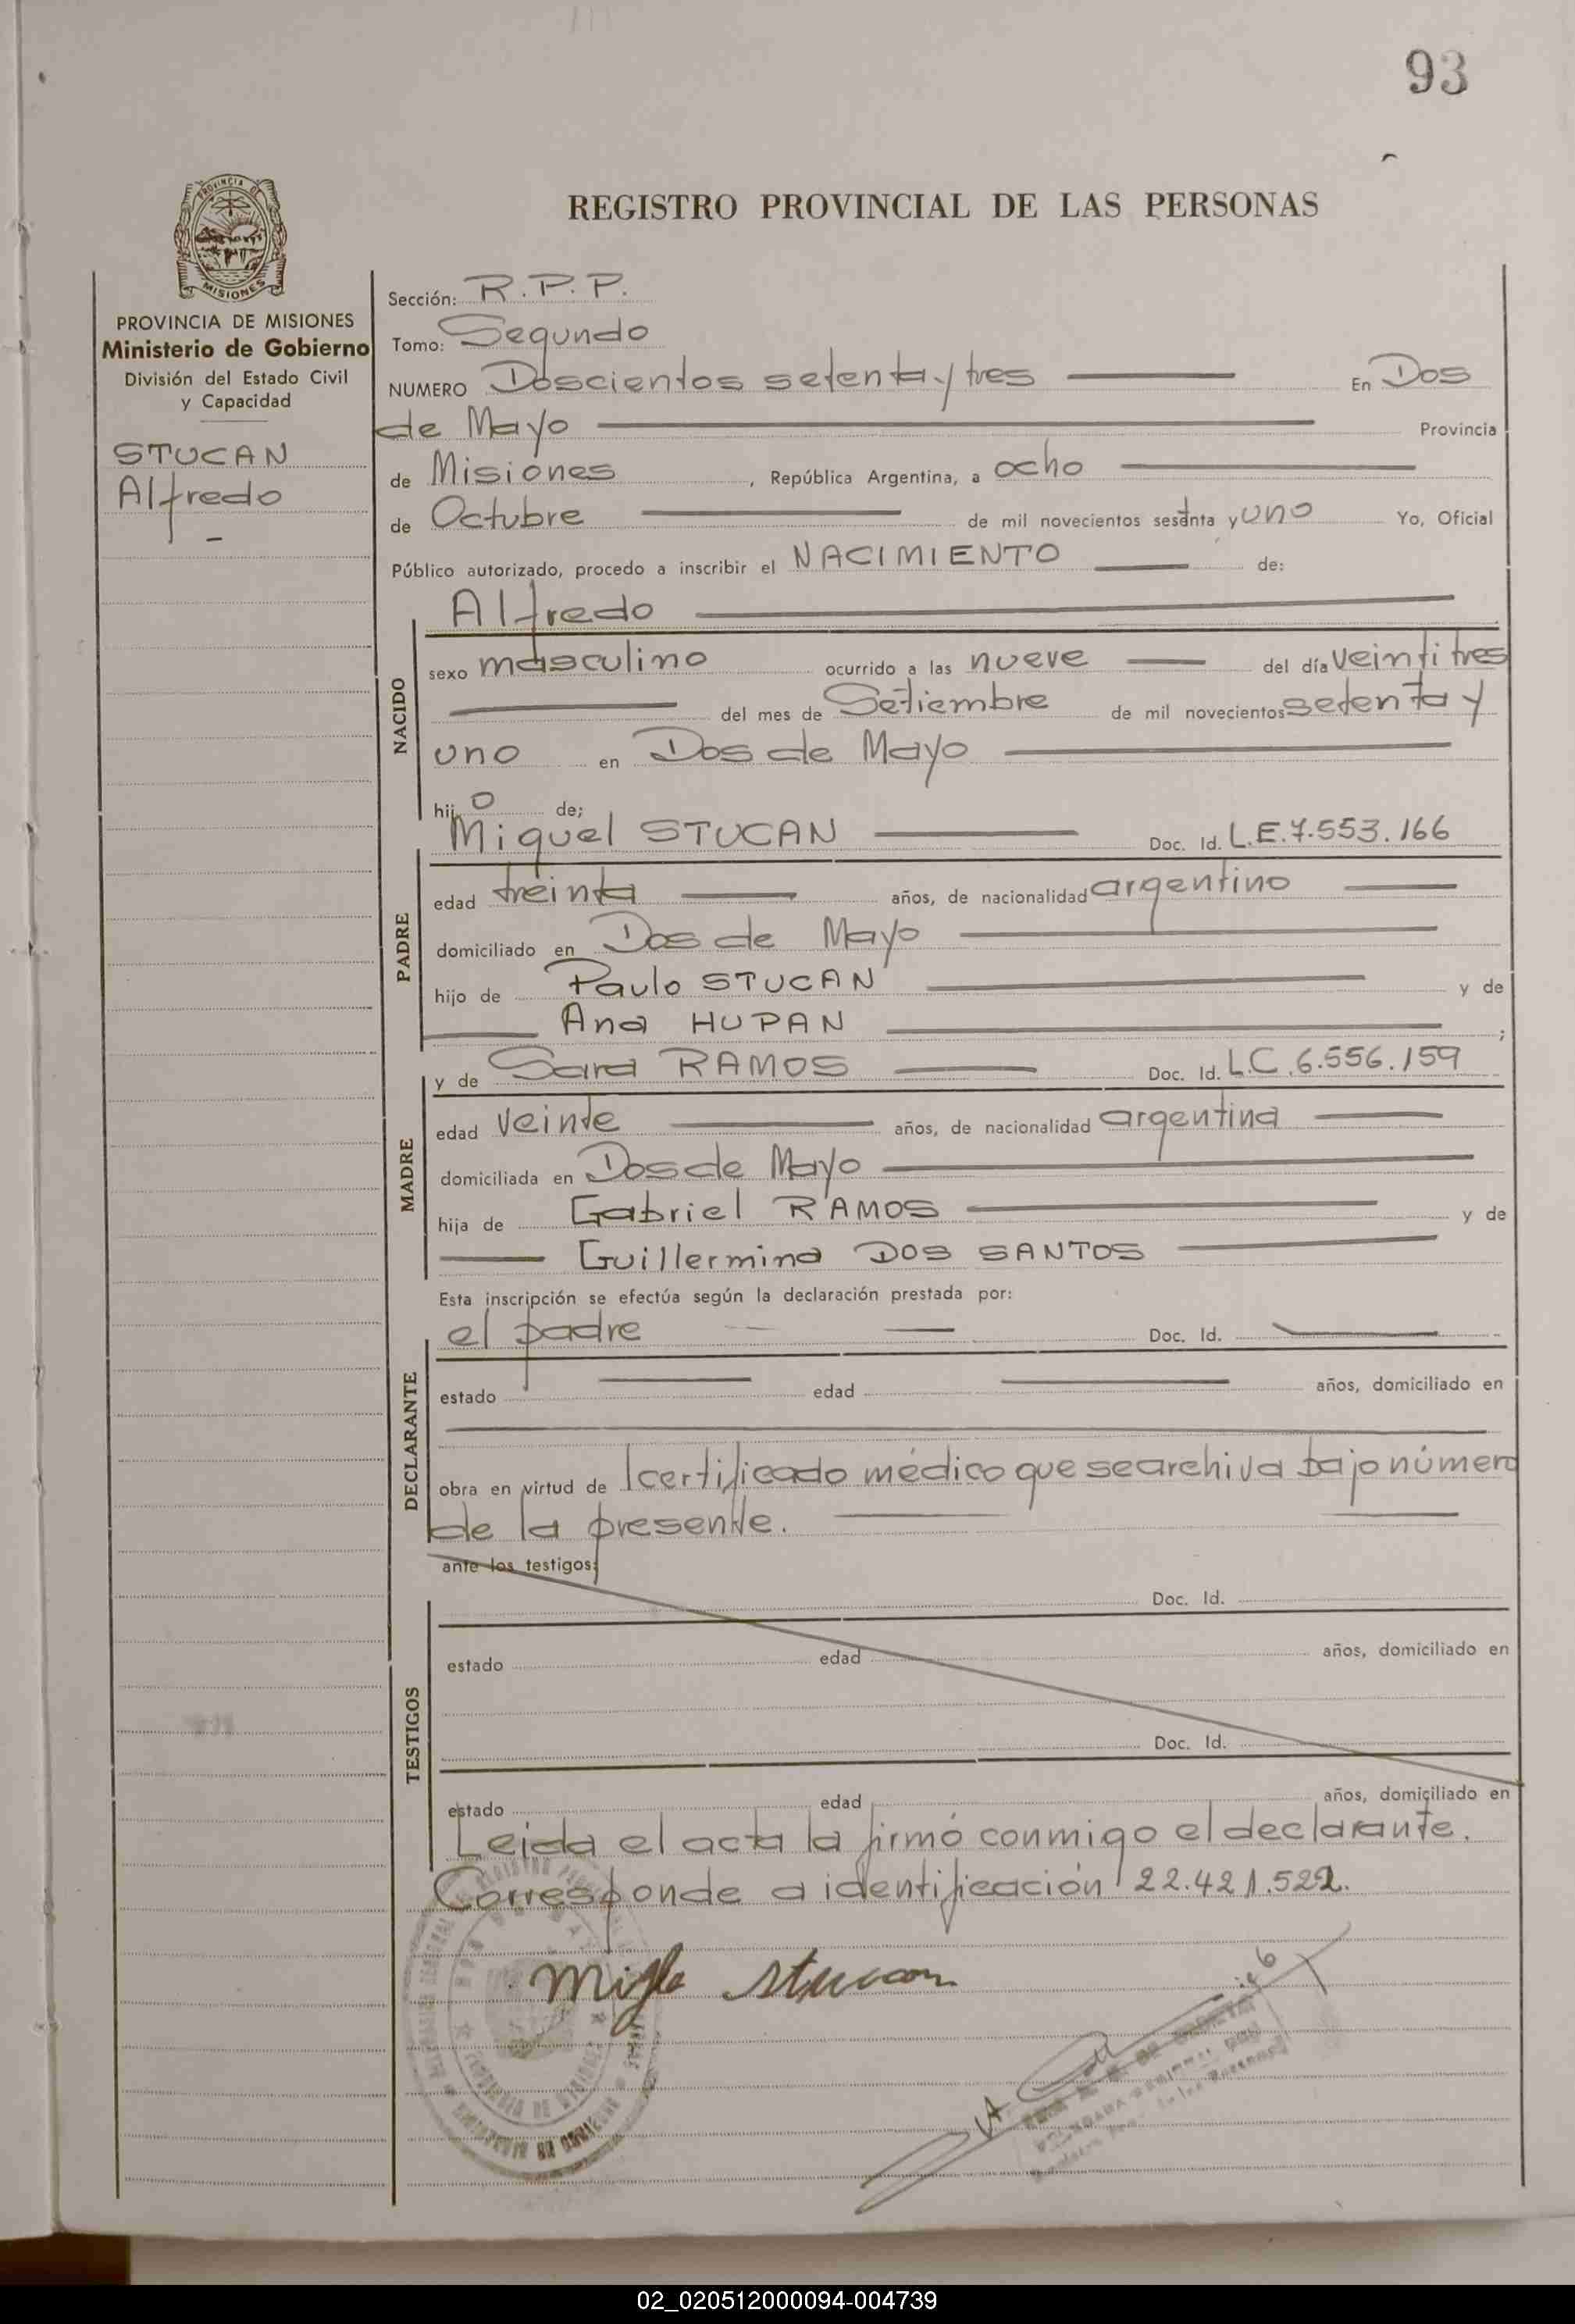 93
REGISTRO PROVINCIAL DE LAS PERSONAS
PROVINCIA DE
MISIONES
PROVINCIA DE MISIONES
Ministerio de Gobierno
División del Estado Civil
y Capacidad
STUCAN
Alfredo
Sección: R.P.P.
Tomo: Segundo
NUMERO Doscientos setenta y tres En Dos
de Mayo Provincia
de Misiones, República Argentina, a ocho
de Octubre de mil novecientos sesenta y uno Yo, Oficial
Público autorizado, procedo a inscribir el NACIMIENTO de:
Alfredo
NACIDO
sexo masculino ocurrido a las nueve del día veintitres
del mes de Setiembre de mil novecientos setenta y
uno en Dos de Mayo
hijo de;
Miguel STUCAN Doc. Id. L.E.7.553.166
PADRE
edad treinta años, de nacionalidad argentino
domiciliado en Dos de Mayo
hijo de Paulo STUCAN y de
Ana HUPAN ;
y de Sara RAMOS Doc. Id. L.C.6.556.159
MADRE
edad veinte años, de nacionalidad argentina
domiciliada en Dos de Mayo
hija de Gabriel RAMOS y de
Guillermina DOS SANTOS
Esta inscripción se efectúa según la declaración prestada por:
el padre Doc. Id.
DECLARANTE
estado edad años, domiciliado en
obra en virtud de lcertificado médico que se archiva bajo número
de la presente.
ante los testigos:
Doc. Id.
TESTIGOS
estado edad años, domiciliado en
Doc. Id.
estado edad años, domiciliado en
Leida el acta la firmó conmigo el declarante.
Corresponde a identificación 22.421.522.
02_020512000094-004739